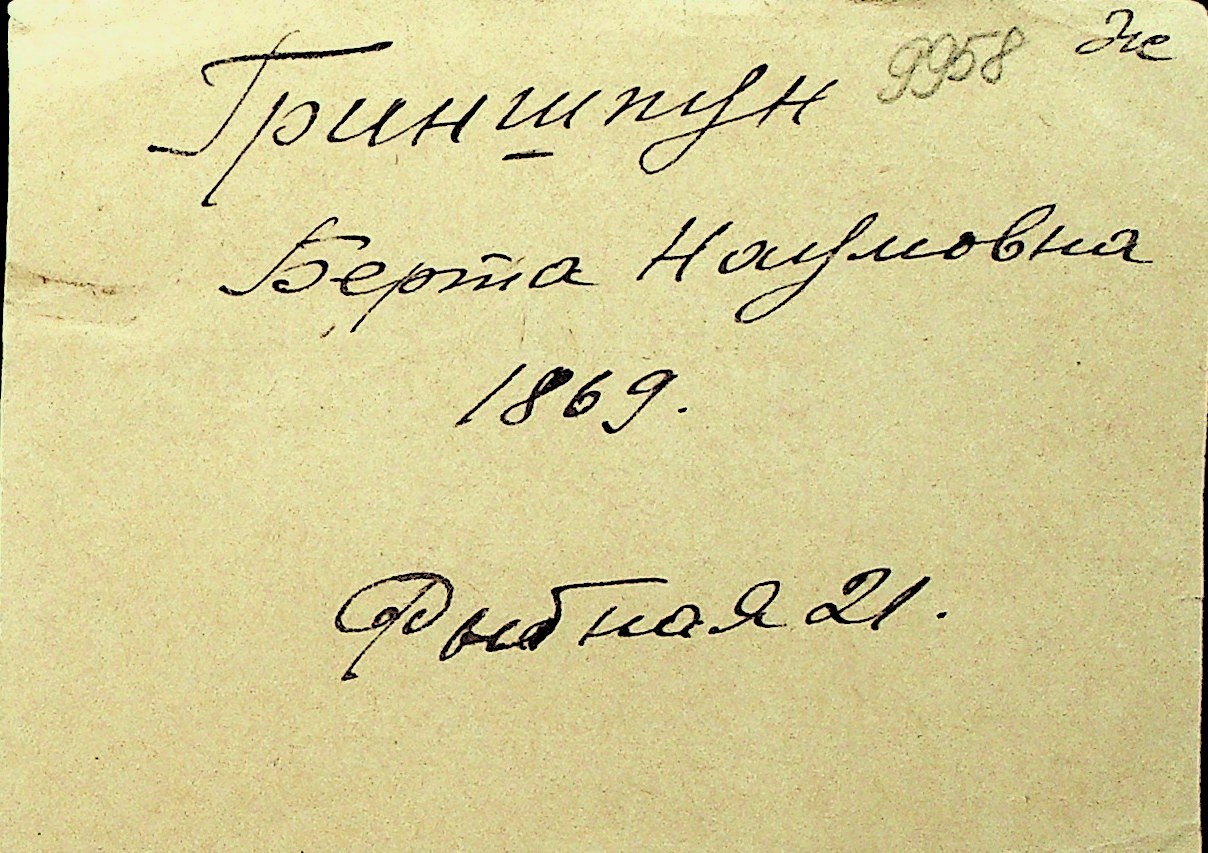 Гриншпун 9958 Же
Берта Наумовна
1869.
Рыбная 21.